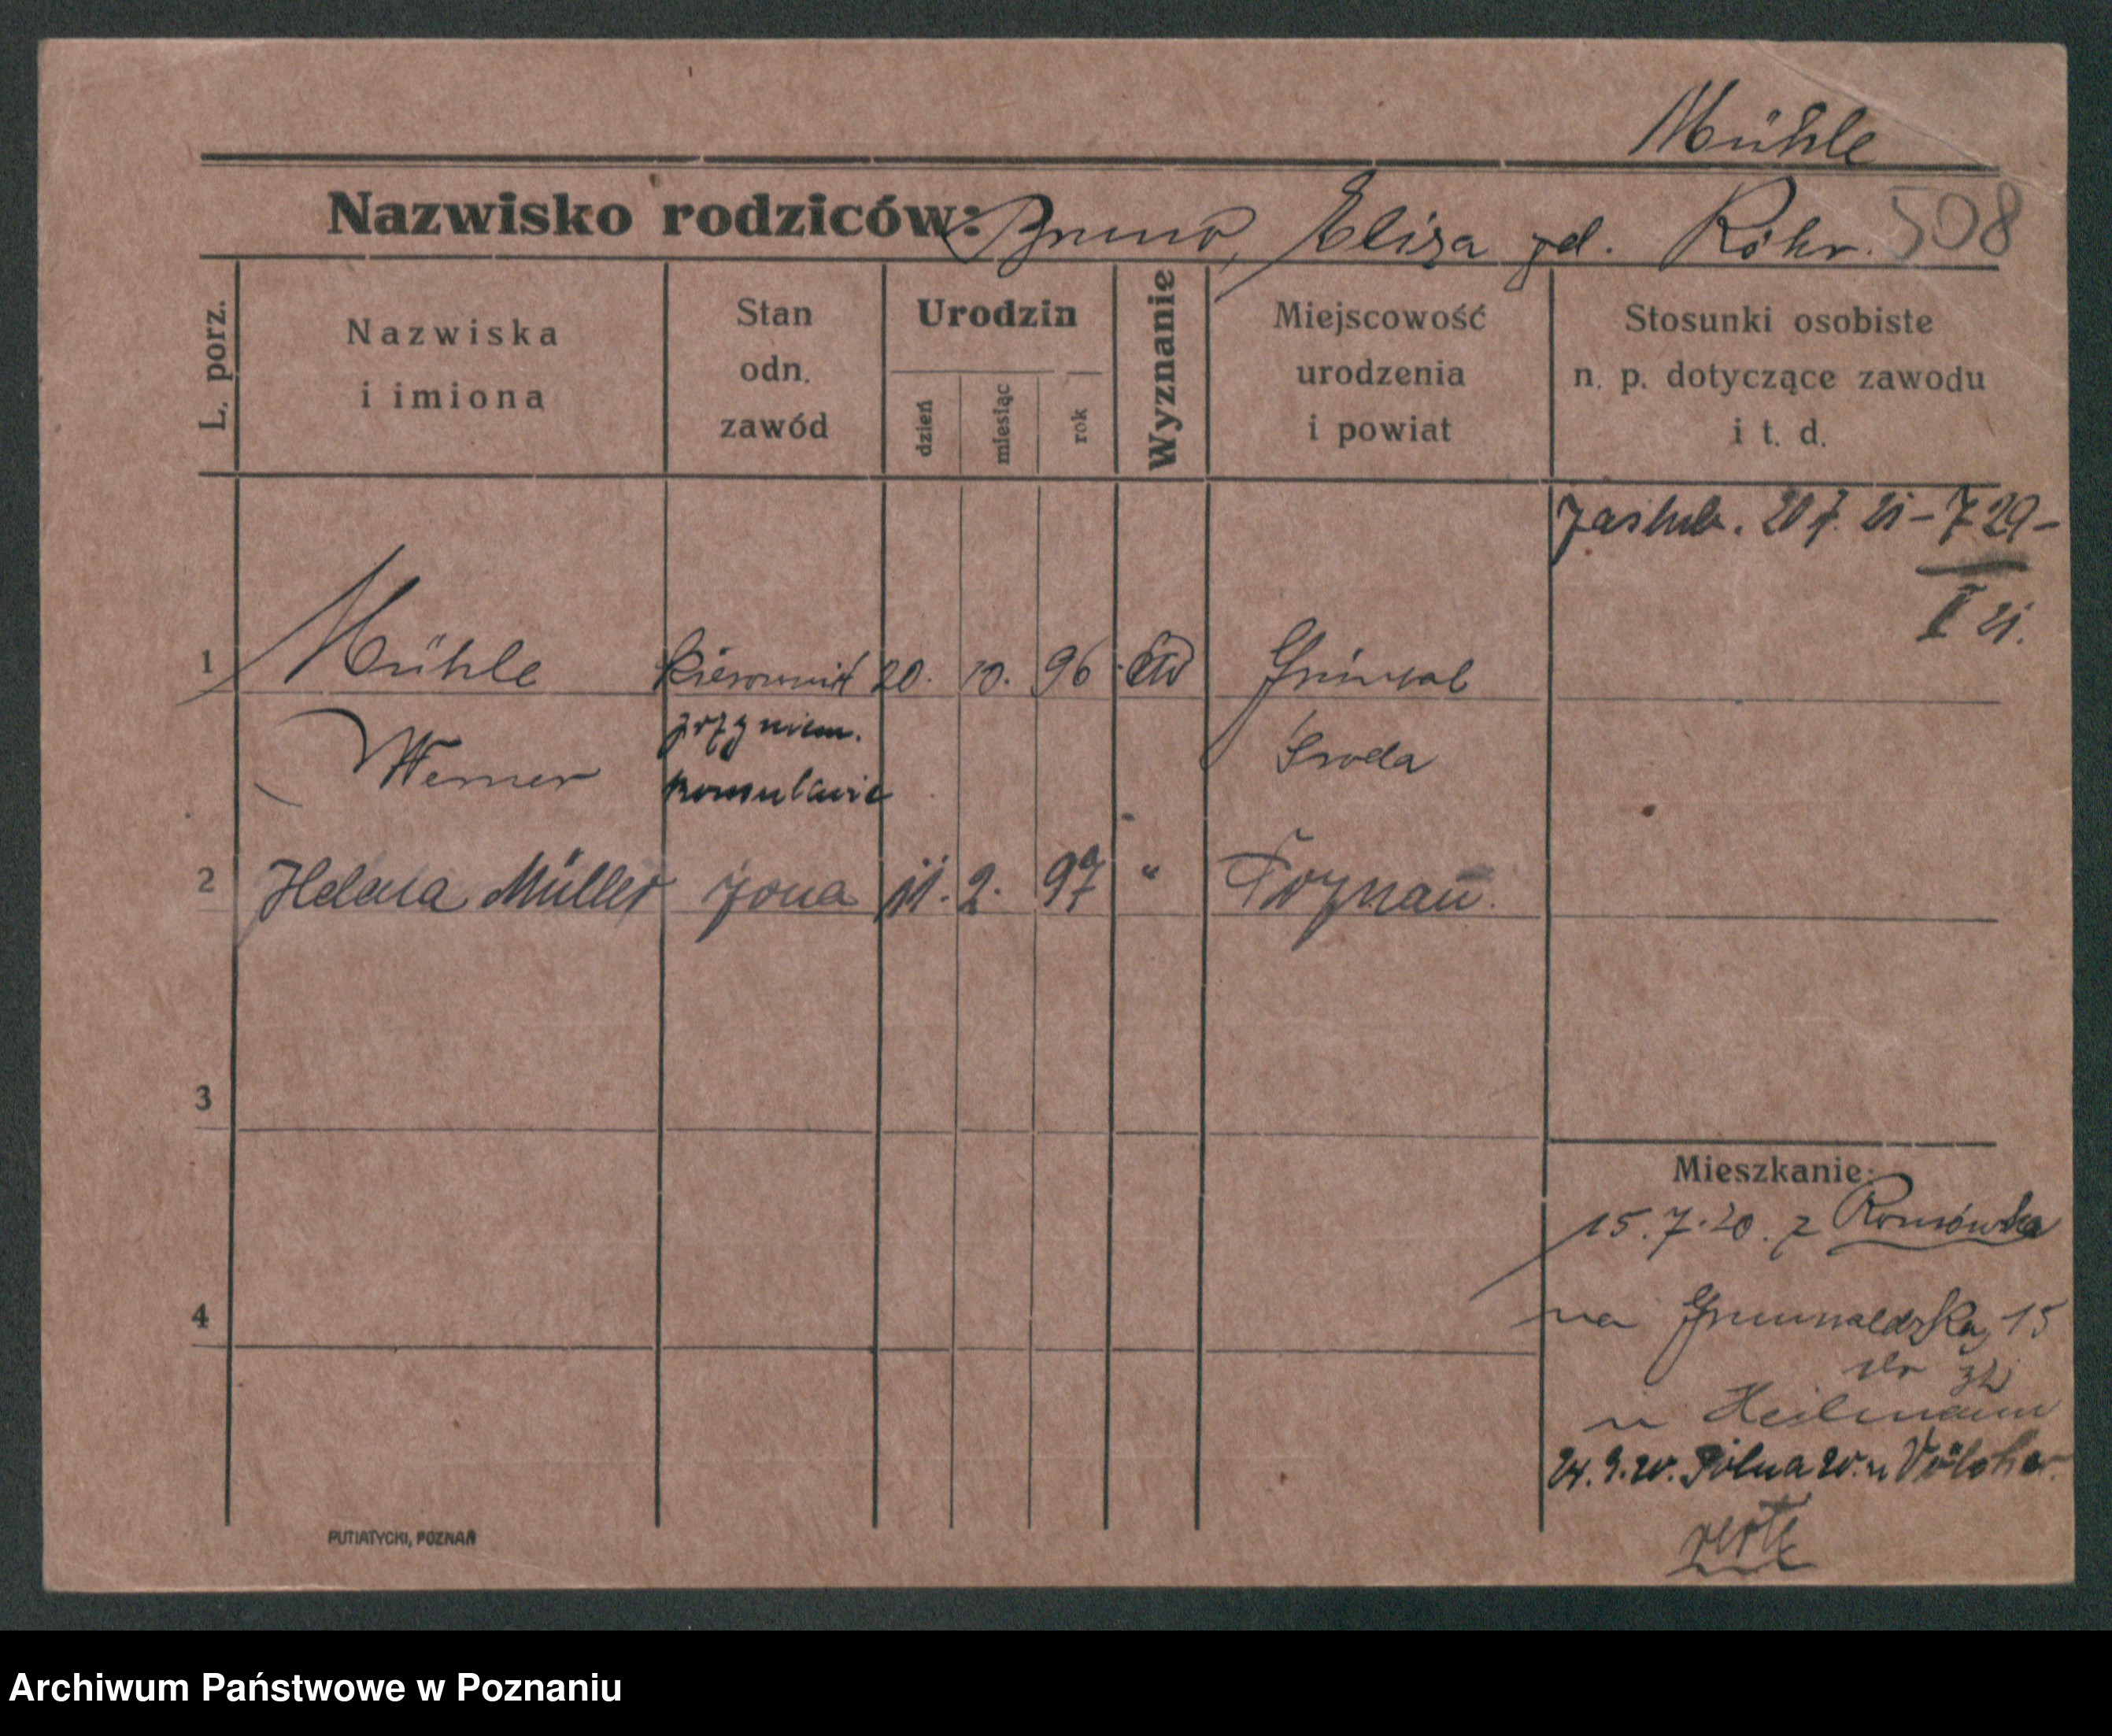 Mühle
Nazwisko rodziców: Bruno, Eliza zd. Röhr. 508
L. porz.
Nazwiska
i imiona
Stan
odn.
zawód
Urodzin
dzień
miesiąc
rok
Wyznanie
Miejscowość
urodzenia
i powiat
Stosunki osobiste
n. p. dotyczące zawodu
i t. d.
20 7. 21 - 7 29 -
II 21.
1 Mühle kierownik 20. 10. 96 ew
Werner przy niem. Sroda
konsulacie
2 Helena Müller żona 11. 2. 97 " Poznań.
3
4
Mieszkanie:
15.7.20. z
na Grunwaldzka 15
u Heilmann
24.9.20. Polna 20. u
verte
PUTIATYCKI, POZNAŃ
Archiwum Państwowe w Poznaniu